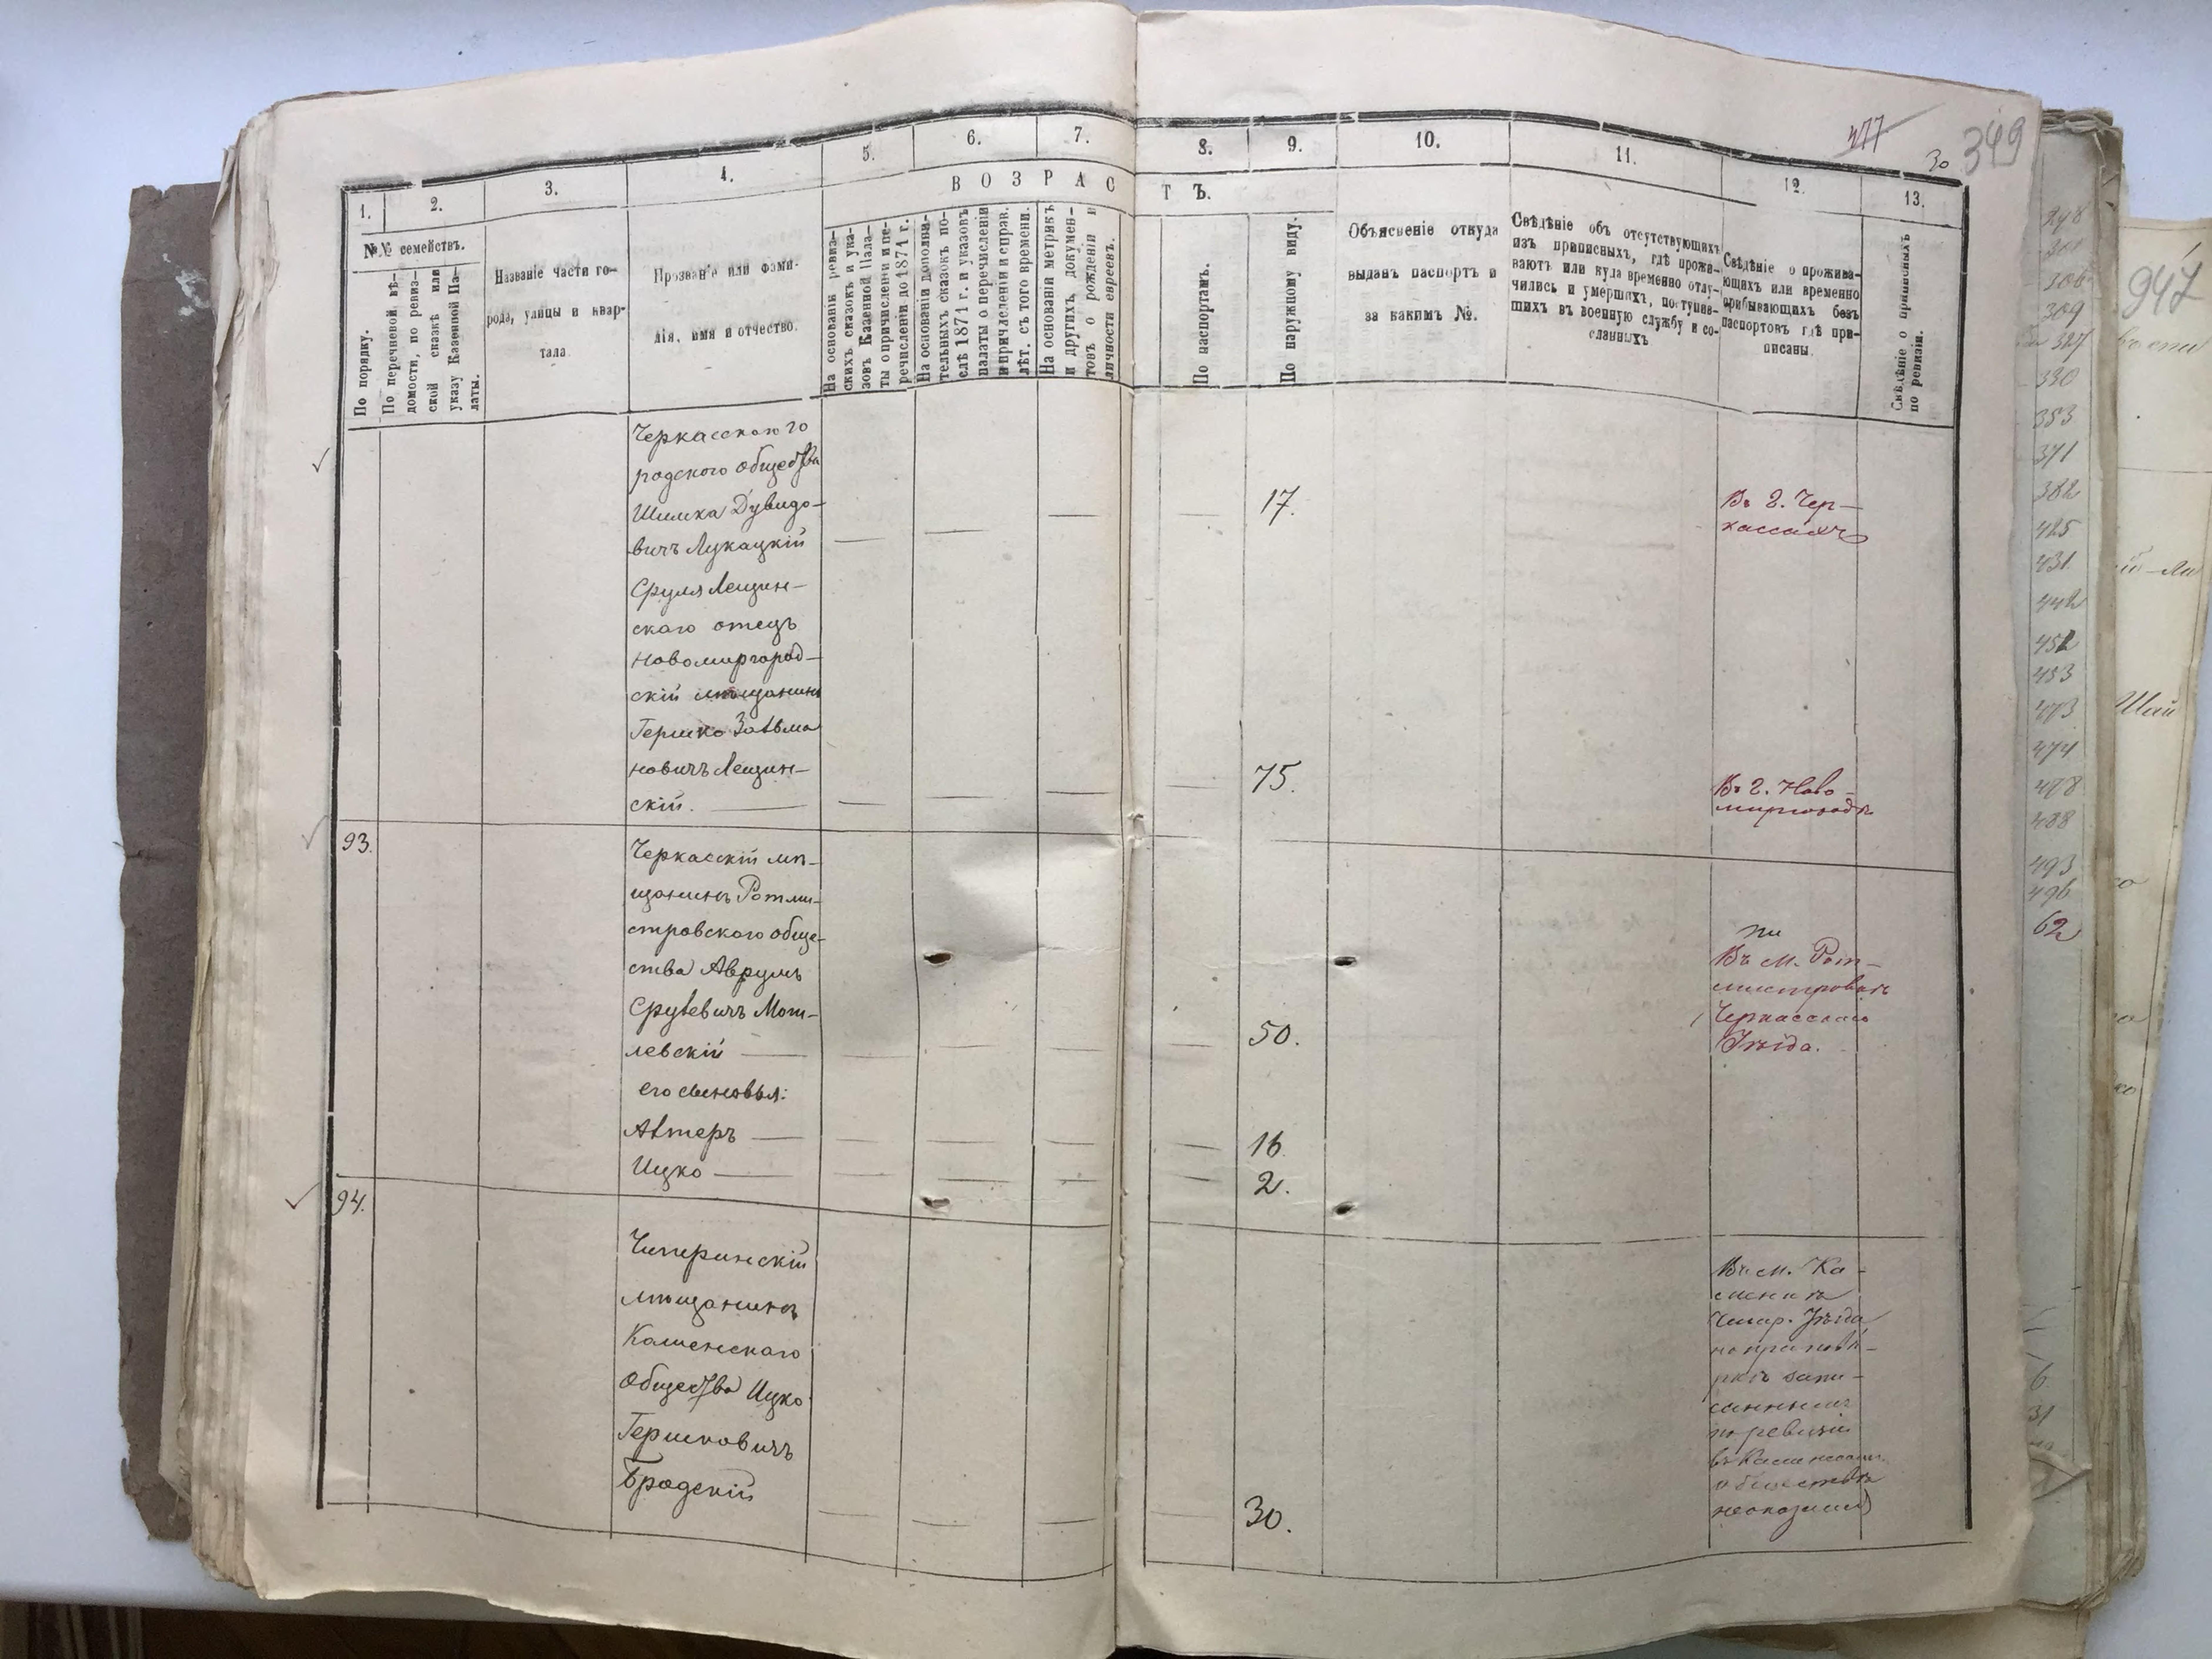 477
30
349
1.
2.
3.
4.
5.
6.
7.
8.
9.
10.
11.
12.
13.
ВОЗРАСТЪ.
№№ семействъ.
По порядку.
По перечневой вѣ-
домости, по ревиз-
ской сказкѣ или
указу Казенной Па-
латы.
Названіе части го-
рода, улицы и квар-
тала
Прозваніе или фами-
лія, имя и отчество.
На основаніи ревиз-
скихъ сказокъ и ука-
зовъ Казенной Пала-
ты о причисленіи и пе-
речисленіи до 1871 г.
На основаніи дополни-
тельныхъ сказокъ по-
слѣ 1871 г. и указовъ
палаты о перечисленіи
и причисленіи и справ.
лѣт. съ того времени.
На основаніи метрикъ
и другихъ докумен-
товъ о рожденіи и
личности евреевъ.
По паспортамъ.
По наружному виду.
Объясненіе откуда
выданъ паспортъ и
за какимъ №.
Свѣдѣніе объ отсутствующихъ
изъ приписныхъ, гдѣ прожи-
ваютъ или куда временно отлу-
чились и умершихъ, поступив-
шихъ въ военную службу и со-
сланныхъ
Свѣдѣніе о прожива-
ющихъ или временно
прибывающихъ безъ
паспортовъ гдѣ при-
писаны.
Свѣдѣніе о приписныхъ
по ревизіи.
Черкасскаго го
родского общества
Шимка Дувидо-
вичъ Лукацкій
17.
Въ г. Чер-
кассахъ
Сруля Лещин-
скаго отецъ
Новомиргород-
скій мѣщанинъ
Гершко Зальма
новичъ Лещин-
скій.
75.
Въ г. Ново-
миргородѣ
93.
Черкасскій мѣ-
щанинъ Ротми-
стровского обще-
ства Аврумъ
Срулевичъ Мот-
левскій
50.
Въ м. Рот-
мистровкѣ
Черкасскаго
Уѣзда.
его сыновья:
Альтеръ
16
Ицко
2.
94.
Чигиринскій
мѣщанинъ
Каменскаго
Общества Ицко
Гершковичъ
Бродскій
30.
Въ м. Ка-
менкѣ
Чигир. Уѣзда
по ревизіи
обществѣ
947
309
327
330
353
371
382
425
431
442
452
453
473
474
478
488
493
496
62
6
31
Шай